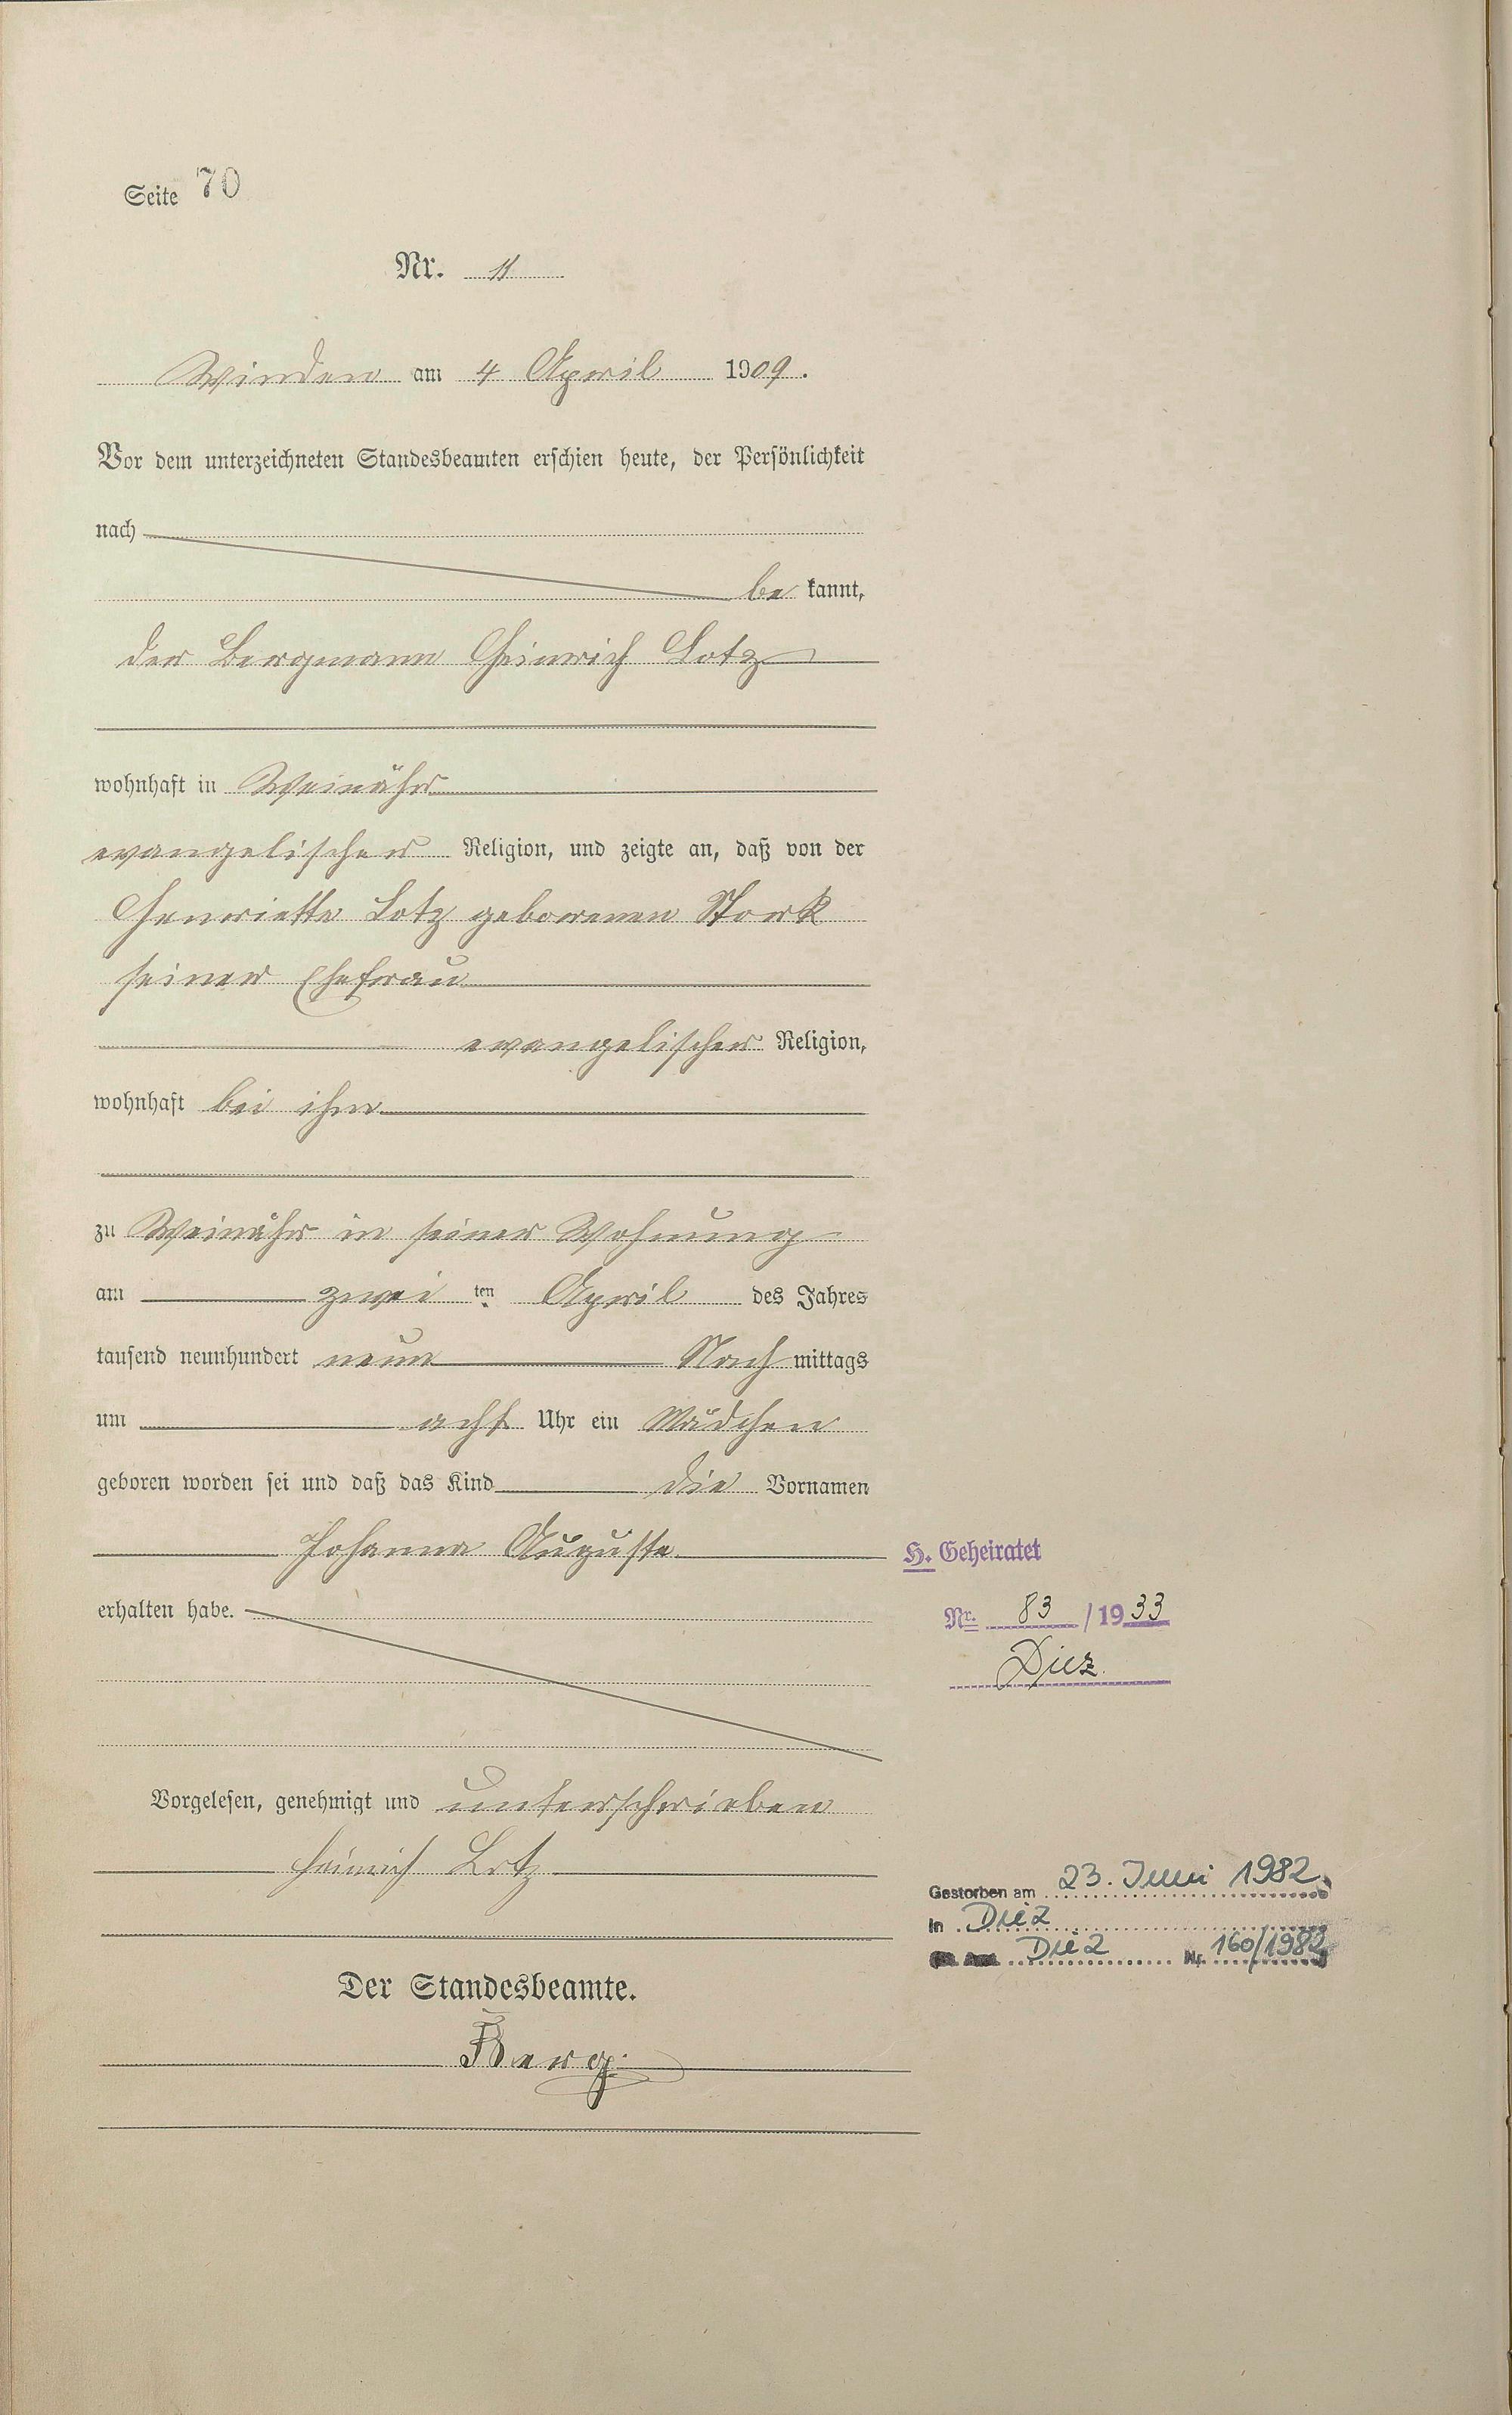 Seite 70
Nr. 11
Winden am 4 April 1909.
Vor dem unterzeichneten Standesbeamten erschien heute, der Persönlichkeit
nach
be kannt,
der Bergmann Heinrich Lotz
wohnhaft in Weinähr
evangelischer Religion, und zeigte an, daß von der
Henriette Lotz geborenen Stork
seiner Ehefrau
evangelischer Religion,
wohnhaft bei ihm
zu Weinähr in seiner Wohnung
am zwei ten April des Jahres
tausend neunhundert neun Nach mittags
um acht Uhr ein Mädchen
geboren worden sei und daß das Kind die Vornamen
Johanna Auguste
erhalten habe.
Vorgelesen, genehmigt und unterschrieben
Heinrich Lotz
Der Standesbeamte.
Berg.
H. Geheiratet
Nr. 83 / 1933
Diez
Gestorben am 23. Juni 1982
in Diez
Diez Nr. 160/1982